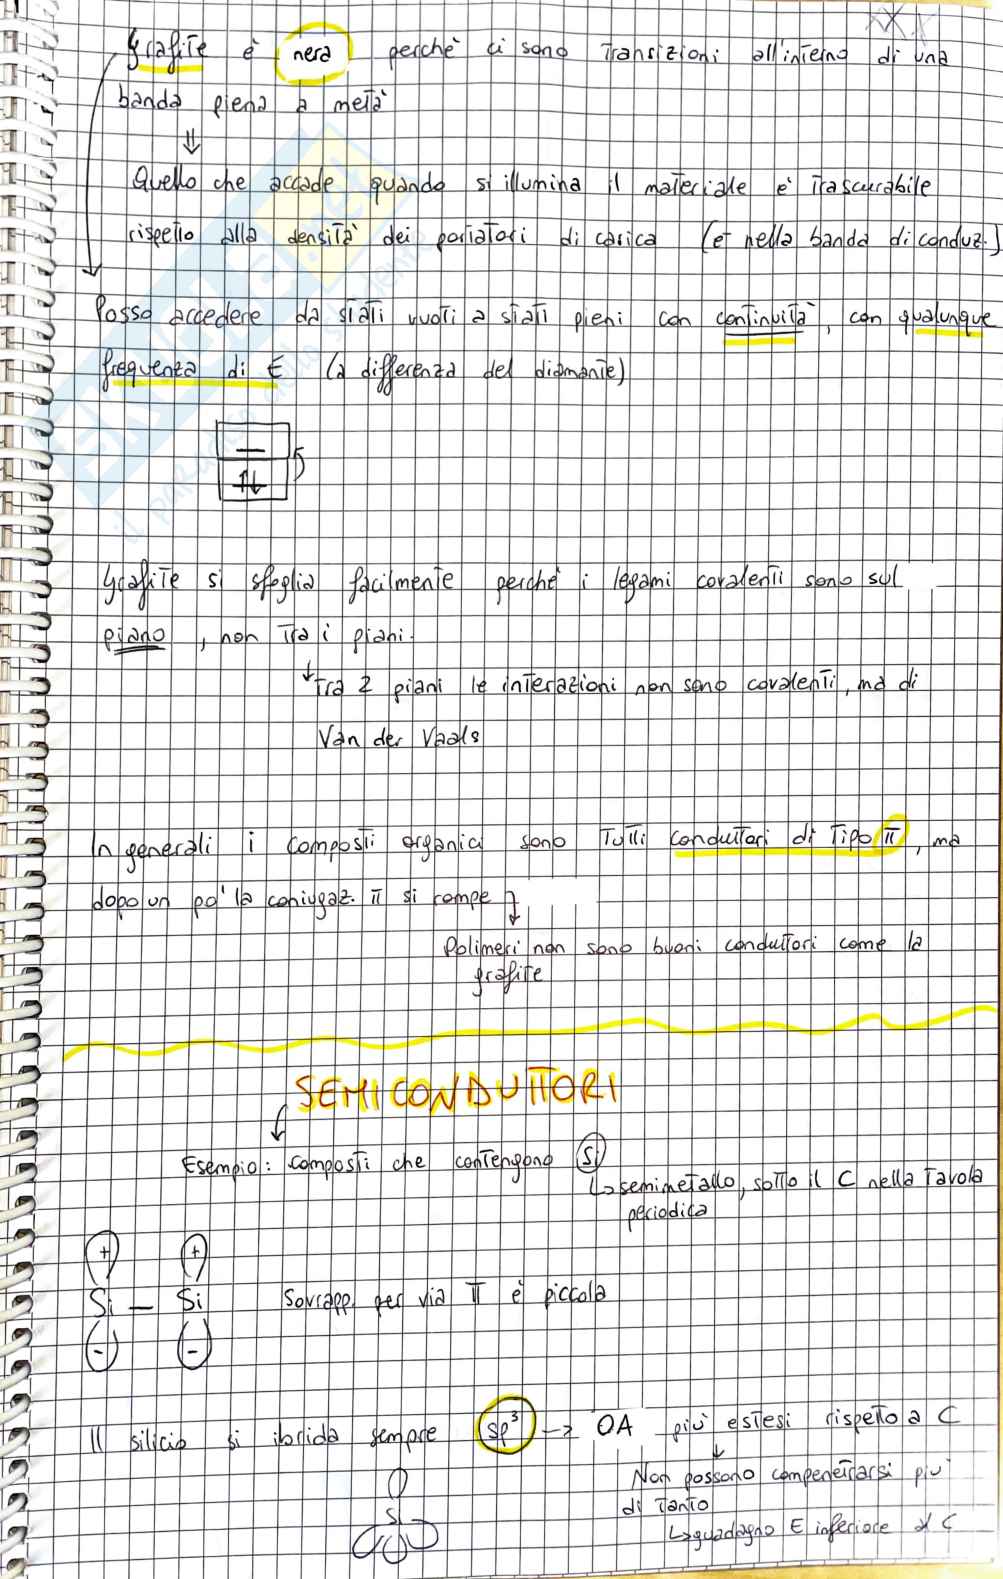 Grafite è nera perchè ci sono transizioni all'interno di una
banda piena a metà
⇓
Quello che accade quando si illumina il materiale è trascurabile
rispetto alla densità dei portatori di carica (e⁻ nella banda di conduz.)
Posso accedere da stati vuoti a stati pieni con continuità, con qualunque
frequenza di E (a differenza del diamante)
Grafite si sfoglia facilmente perchè i legami covalenti sono sul
piano, non tra i piani.
↓ tra 2 piani le interazioni non sono covalenti, ma di
Van der Vaals
In generali i composti organici sono tutti conduttori di tipo π, ma
dopo un po' la coniugaz. π si rompe
Polimeri non sono buoni conduttori come la
grafite
SEMICONDUTTORI
Esempio: composti che contengono Si
↳ semimetallo, sotto il C nella tavola
periodica
+ +
Si — Si Sovrapp. per via π è piccola
- -
Il silicio si ibrida sempre sp³ → OA più estesi rispetto a C
Non possono compenetrarsi più
di tanto
↳ guadagno E inferiore al C
Si